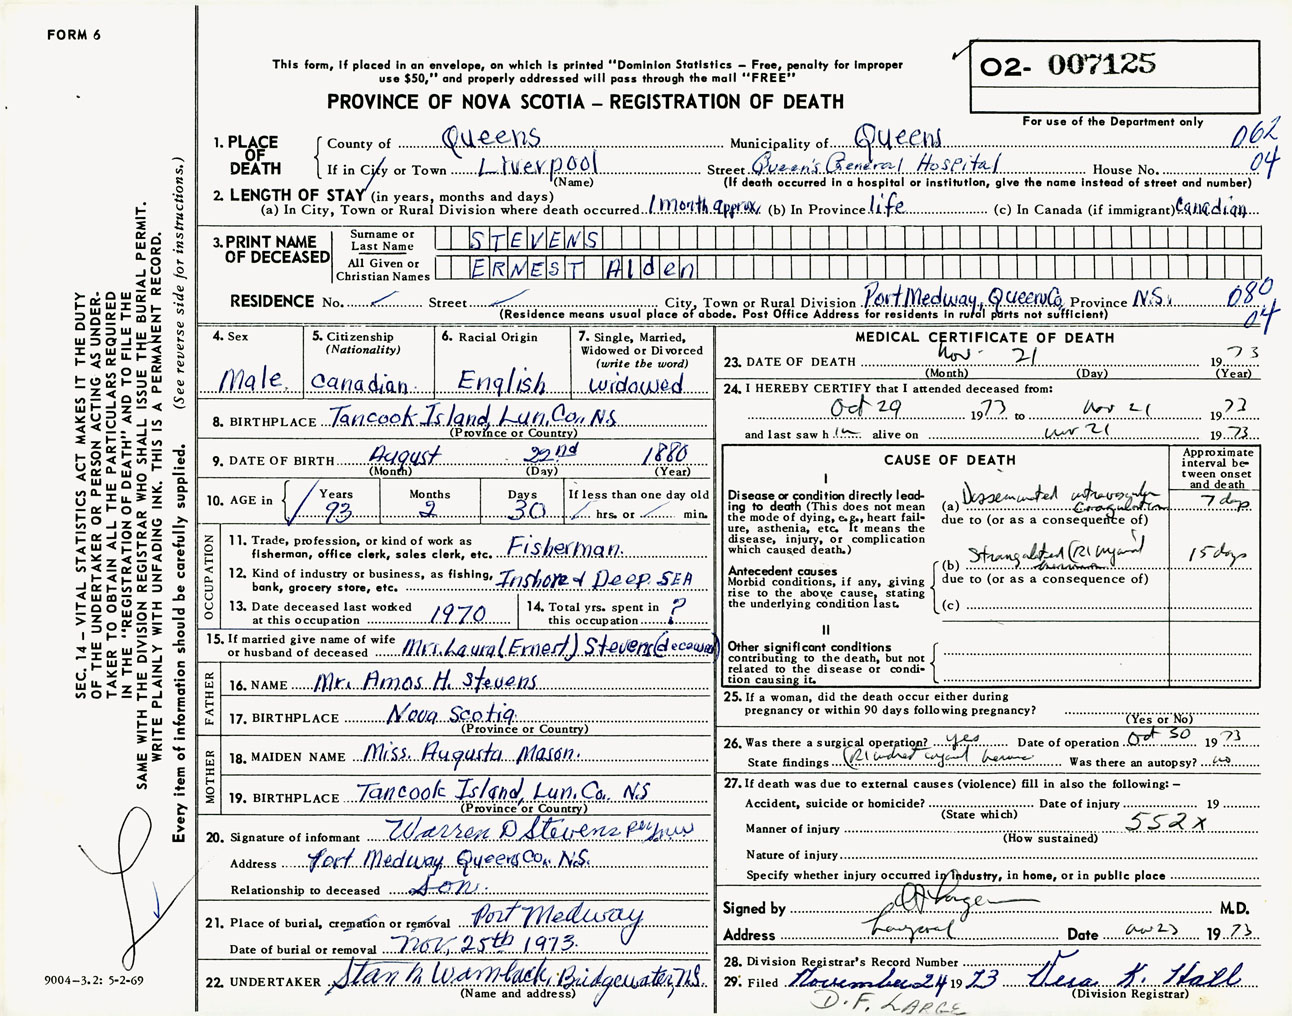 FORM 6
This form, if placed in an envelope, on which is printed "Dominion Statistics – Free, penalty for improper
use $50," and properly addressed will pass through the mail "FREE"
PROVINCE OF NOVA SCOTIA – REGISTRATION OF DEATH
O2- 007125
For use of the Department only
1. PLACE OF DEATH
County of Queens Municipality of Queens 062
If in City or Town Liverpool Street Queen's General Hospital House No. 04
(Name) (If death occurred in a hospital or institution, give the name instead of street and number)
2. LENGTH OF STAY (in years, months and days)
(a) In City, Town or Rural Division where death occurred 1 month approx. (b) In Province life (c) In Canada (if immigrant) Canadian
3. PRINT NAME OF DECEASED
Surname or Last Name STEVENS
All Given or Christian Names ERNEST Alden
RESIDENCE No. Street City, Town or Rural Division Port Medway, Queen Co. Province N.S. 080
(Residence means usual place of abode. Post Office Address for residents in rural parts not sufficient) 04
4. Sex Male
5. Citizenship (Nationality) Canadian
6. Racial Origin English
7. Single, Married, Widowed or Divorced (write the word) widowed
8. BIRTHPLACE Tancook Island, Lun. Co. N.S
(Province or Country)
9. DATE OF BIRTH August 22nd 1880
(Month) (Day) (Year)
10. AGE in Years 93 Months 2 Days 30 If less than one day old hrs. or min.
OCCUPATION
11. Trade, profession, or kind of work as fisherman, office clerk, sales clerk, etc. Fisherman.
12. Kind of industry or business, as fishing, bank, grocery store, etc. Inshore & Deep SEA
13. Date deceased last worked at this occupation 1970
14. Total yrs. spent in this occupation ?
15. If married give name of wife or husband of deceased Mrs. Laura (Ernest) Stevens (deceased)
FATHER
16. NAME Mr. Amos H. Stevens
17. BIRTHPLACE Nova Scotia
(Province or Country)
MOTHER
18. MAIDEN NAME Miss. Augusta Mason.
19. BIRTHPLACE Tancook Island, Lun. Co. NS
(Province or Country)
20. Signature of informant Warren D Stevens per
Address Port Medway Queens Co. N.S.
Relationship to deceased Son.
21. Place of burial, cremation or removal Port Medway
Date of burial or removal Nov, 25th 1973.
22. UNDERTAKER Stan M Wamback, Bridgewater, N.S.
(Name and address)
MEDICAL CERTIFICATE OF DEATH
23. DATE OF DEATH Nov. 21 1973
(Month) (Day) (Year)
24. I HEREBY CERTIFY that I attended deceased from:
Oct 29 1973 to Nov 21 1973
and last saw him alive on Nov 21 1973
CAUSE OF DEATH
Approximate interval between onset and death
I
Disease or condition directly leading to death (This does not mean the mode of dying, e.g., heart failure, asthenia, etc. It means the disease, injury, or complication which caused death.)
(a) Disseminated intravascular Coagulation 7 days
due to (or as a consequence of)
Antecedent causes
Morbid conditions, if any, giving rise to the above cause, stating the underlying condition last.
(b) Strangulated (R) inguinal hernia 15 days
due to (or as a consequence of)
(c)
II
Other significant conditions contributing to the death, but not related to the disease or condition causing it.
25. If a woman, did the death occur either during pregnancy or within 90 days following pregnancy?
(Yes or No)
26. Was there a surgical operation? yes Date of operation Oct 30 1973
State findings (R) indirect inguinal hernia Was there an autopsy? no
27. If death was due to external causes (violence) fill in also the following: –
Accident, suicide or homicide? Date of injury 19
(State which)
Manner of injury 552x
(How sustained)
Nature of injury
Specify whether injury occurred in industry, in home, or in public place
Signed by M.D.
Address Liverpool Date Nov 23 1973
28. Division Registrar's Record Number
29. Filed November 24 1973 Vera K. Hall
(Division Registrar)
D.F. LARGE
SEC. 14 – VITAL STATISTICS ACT MAKES IT THE DUTY
OF THE UNDERTAKER OR PERSON ACTING AS UNDER-
TAKER TO OBTAIN ALL THE PARTICULARS REQUIRED
IN THE "REGISTRATION OF DEATH" AND TO FILE THE
SAME WITH THE DIVISION REGISTRAR WHO SHALL ISSUE THE BURIAL PERMIT.
WRITE PLAINLY WITH UNFADING INK. THIS IS A PERMANENT RECORD.
Every item of information should be carefully supplied. (See reverse side for instructions.)
9004-3.2: 5-2-69